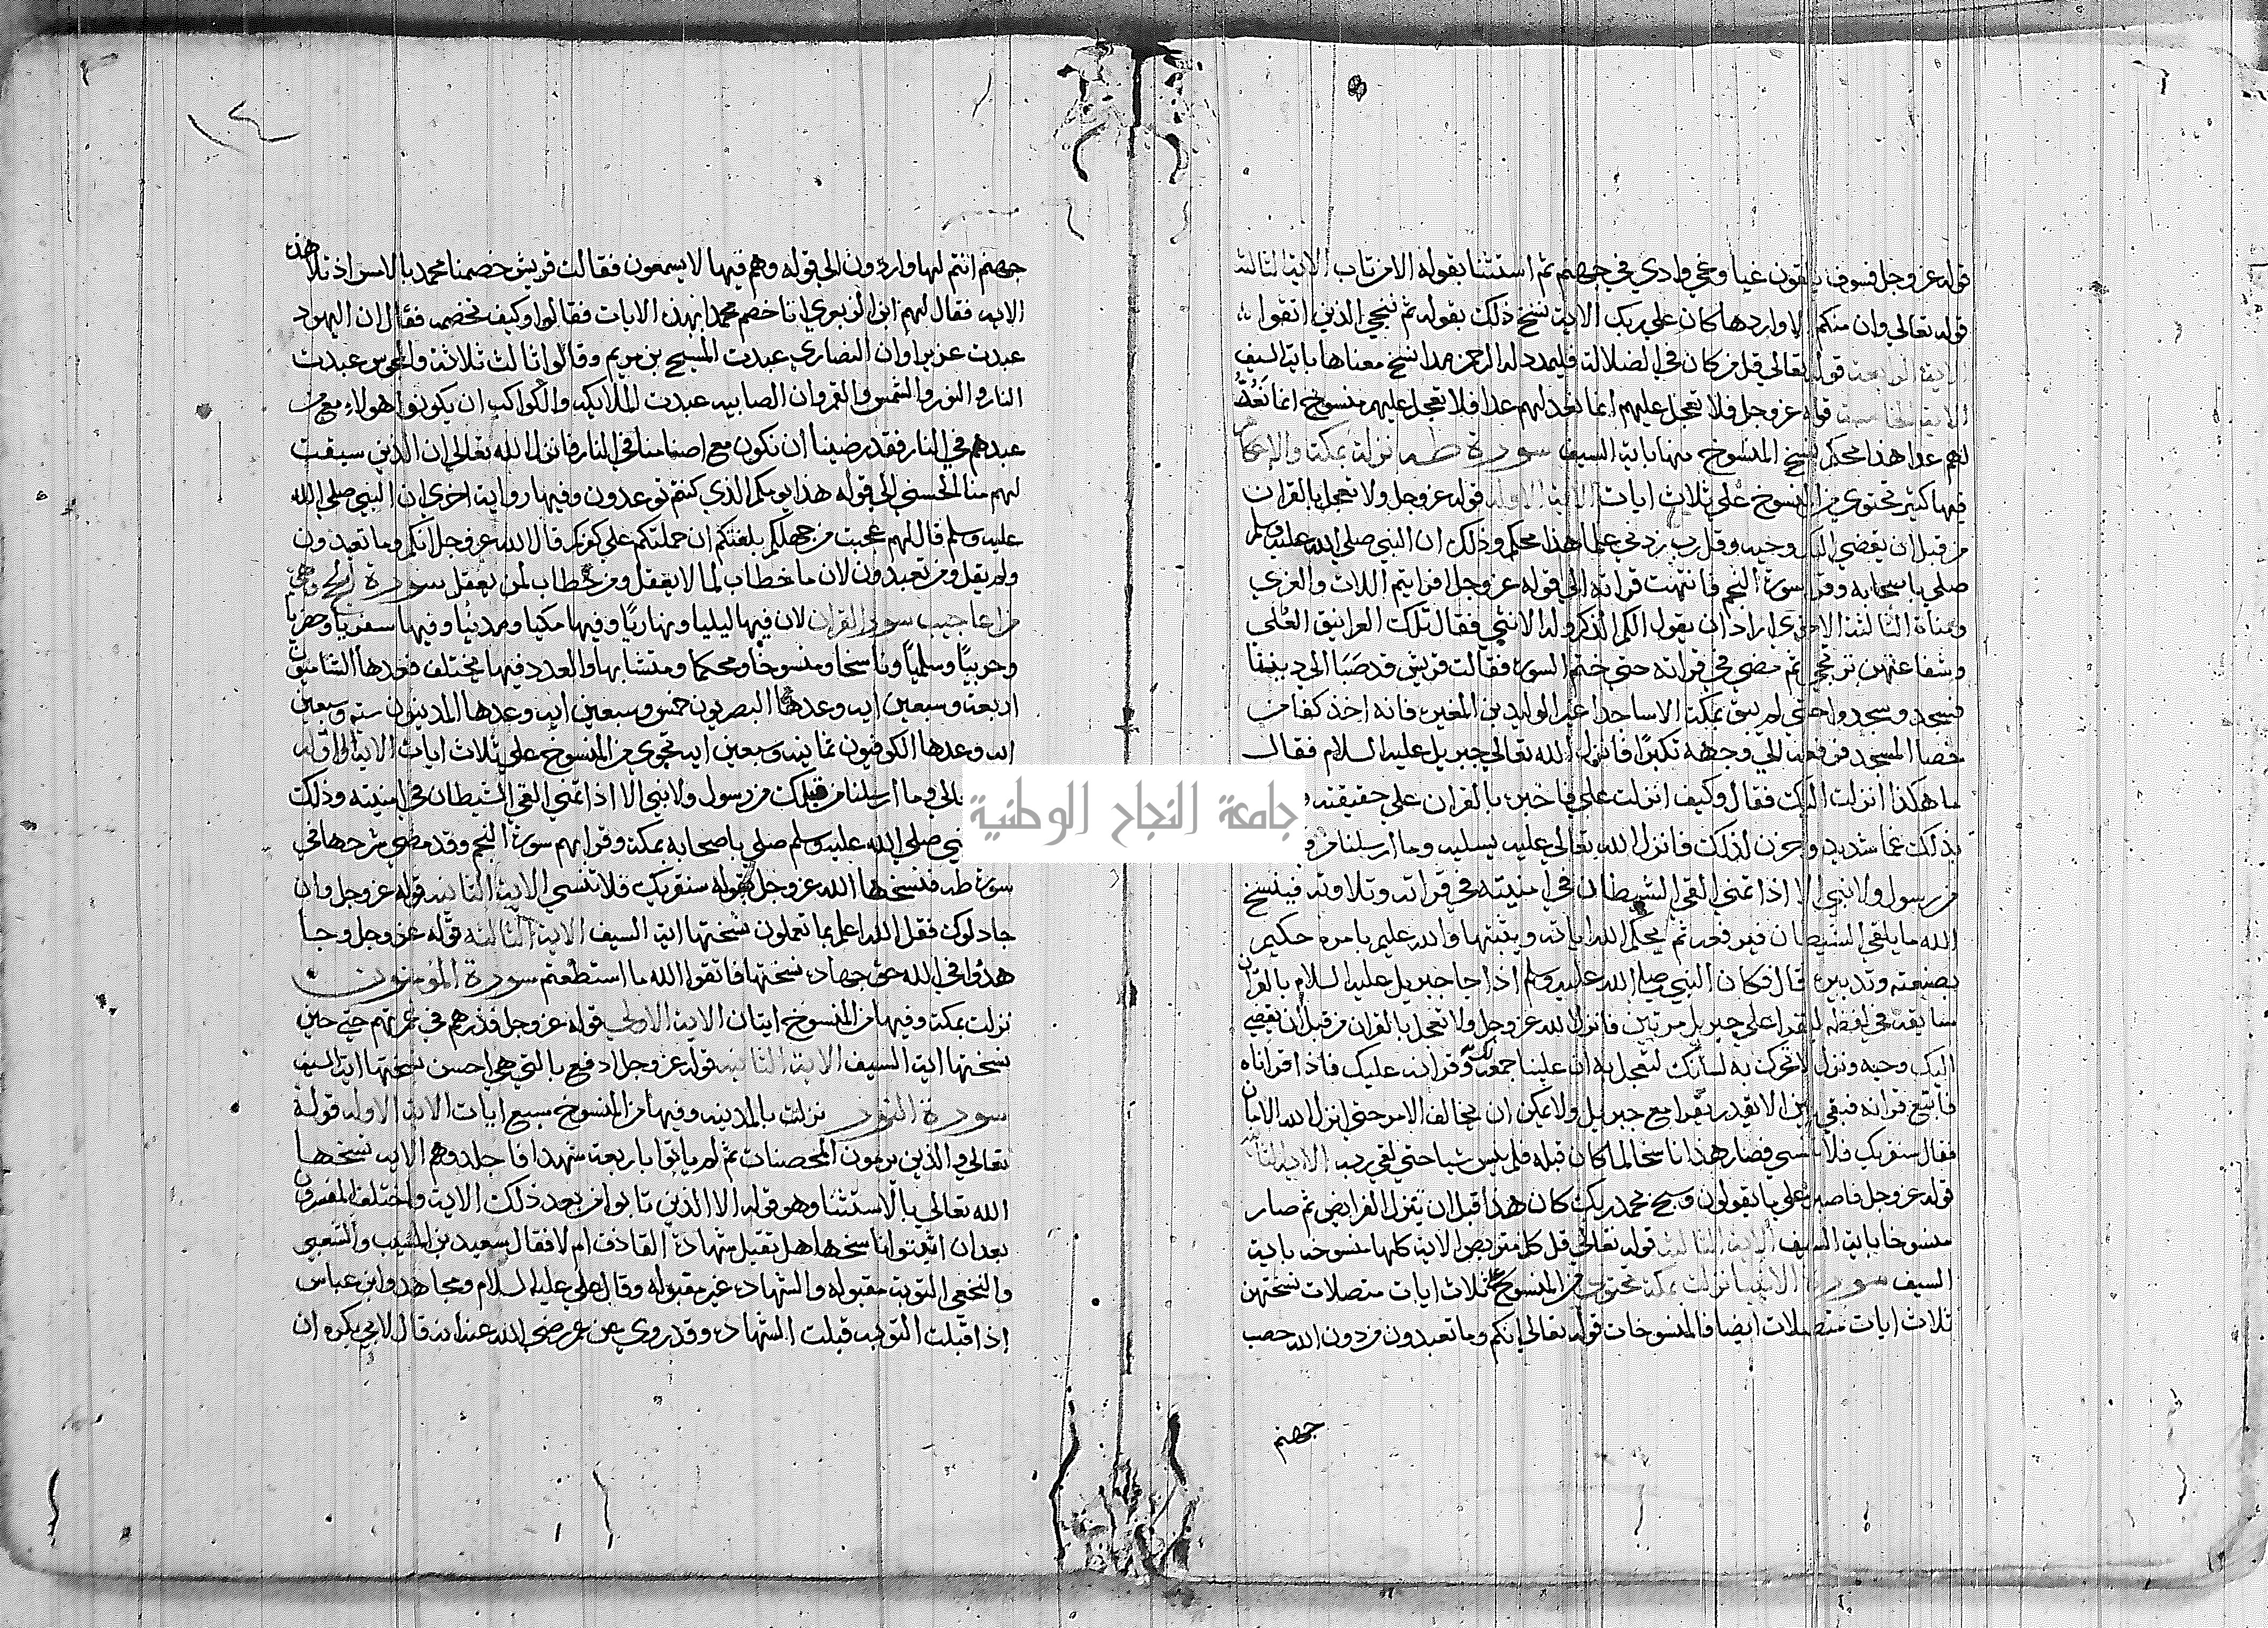 قوله عز وجل فسوف يلقون غيا وغي وادي في جهنم ثم استثنا بقوله الا من تاب الاية الثالثة
قوله تعالي وان منكم الا واردها كان علي ربك الاية نسخ ذلك بقوله ثم ننجي الذين اتقوا
الاية الرابعة قوله تعالي قل من كان في الضلالة فليمدد له الرحمن مدا نسخ معناها باية السيف
الاية الخامسة قوله عز وجل فلا تعجل عليهم انما نعد لهم عدا فلا تعجل عليهم منسوخ انما نعد
لهم عدا هذا محكم نسخ المنسوخ منها باية السيف سورة طه نزلت بمكة والاحكام
فيها كثير تحتوي من المنسوخ علي ثلاث ايات الاية الاوله قوله عز وجل ولا تعجل بالقران
من قبل ان يقضي اليك وحيه وقل رب زدني علما هذا محكم وذلك ان النبي صلي الله عليه وسلم
صلي باصحابه وقرا سورة النجم فانتهت قراته الي قوله عز وجل افرايتم اللات والعزي
ومناة الثالثة الاخري اراد ان يقول الكم الذكر وله الانثي فقال تلك الغرانيق العلي
وشفاعتهن ترتجي ثم مضي في قراته حتي ختم السورة فقالت قريش قد صبا الي ديننا
فسجد وسجدوا حتي لم يبق بمكة الا ساجدا غير الوليد بن المغيرة فانه اخذ كفا من
حصا المسجد فرفعه الي وجهه تكبرا فانزل الله تعالي جبريل عليه السلام فقال
ما هكذا انزلت اليك فقال وكيف انزلت علي فاخبره بالقران علي حقيقته
بذلك غما شديد وحزن لذلك فانزل الله تعالي عليه يسليه وما ارسلنا من
من رسول ولا نبي الا اذا تمني القي الشيطان في امنيته في قراته وتلاوته فينسخ
الله ما يلقي الشيطان فيرفعه ثم يحكم الله اياته ويثبتها والله عليم بامره حكيم
بصنعته وتدبيره قال فكان النبي صلي الله عليه وسلم اذا جا جبريل عليه السلام بالقران
سابقه في لفظه ليقرا علي جبريل مرتين فانزل الله عز وجل ولا تعجل بالقران من قبل ان يقضي
اليك وحيه ونزل لا تحرك به لسانك لتعجل به ان علينا جمعه وقرانه عليك فاذا قراناه
فاتبع قرانه فبقي لا يقدر يقرا مع جبريل ولا يمكن ان يخالف الامر حتي انزل الله الامان
فقال سنقريك فلا تنسي فصار هذا ناسخا لما كان قبله فلم ينس شيا حتي لقي ربه الاية الثانية
قوله عز وجل فاصبر علي ما يقولون وسبح بحمد ربك كان هذا قبل ان ينزل الفرايض ثم صار
منسوخا باية السيف الاية الثالثة قوله تعالي قل كل متربص الاية كلها منسوخه باية
السيف سورة الانبيا نزلت بمكة تحتوي من المنسوخ علي ثلاث ايات متصلات نسختهن
ثلاث ايات متصلات ايضا فالمنسوخات قوله تعالي انكم وما تعبدون من دون الله حصب
جهنم
جهنم انتم لها واردون الي قوله وهم فيها لا يسمعون فقالت قريش خصمنا محمد بالامس اذ تلا هذه
الاية فقال لهم ابن الزبعري انا خصم محمد بهذه الايات فقالوا وكيف تخصمه فقال ان اليهود
عبدت عزيرا وان النصاري عبدت المسيح بن مريم وقالوا ثالث ثلاثة والمجوس عبدت
النار والنور والشمس والقمر وان الصابيه عبدت الملايكه والكواكب ان يكونوا هولاء مع من
عبدهم في النار فقد رضينا ان نكون مع اصنامنا في النار فانزل الله تعالي ان الذين سبقت
لهم منا الحسني الي قوله هذا يومكم الذي كنتم توعدون وفيها رواية اخري ان النبي صلي الله
عليه وسلم قال لهم عجبت من جهلكم بلغتكم ان حملتكم علي كفركم قال الله عز وجل انكم وما تعبدون
ولم يقل ومن تعبدون لان ما خطاب لما لا يعقل ومن خطاب لمن يعقل سورة الحج وهي
من اعاجيب سور القران لان فيها ليليا ونهاريا وفيها مكيا ومدنيا وفيها سفريا وحضريا
وحربيا وسلميا وناسخا ومنسوخا ومحكما ومتشابها والعدد فيها مختلف فعدها الشاميون
اربعة وسبعين ايه وعدها البصريون خمس وسبعين ايه وعدها المدنيون ستة وسبعين
ايه وعدها الكوفيون ثمانيه وسبعين ايه تحتوي من المنسوخ علي ثلاث ايات الاية الاولي قوله
وما ارسلنا من قبلك من رسول ولا نبي الا اذا تمني القي الشيطان في امنيته وذلك
صلي الله عليه وسلم صلي باصحابه بمكة وقرا بهم سورة النجم وقد مضي شرحها في
سورة طه فنسخها الله عز وجل بقوله سنقريك فلا تنسي الاية الثانيه قوله عز وجل وان
جادلوك فقل الله اعلم بما تعملون نسختها اية السيف الاية الثالثه قوله عز وجل وجا
هدوا في الله حق جهاده نسختها فاتقوا الله ما استطعتم سورة المؤمنون
نزلت بمكة وفيها من المنسوخ ايتان الاية الاولي قوله عز وجل فذرهم في غمرتهم حتي حين
نسختها اية السيف الاية الثانيه قوله عز وجل ادفع بالتي هي احسن نسختها اية السيف
سورة النور نزلت بالمدينه وفيها من المنسوخ سبع ايات الاية الاوله قوله
تعالي والذين يرمون المحصنات ثم لم ياتوا باربعة شهدا فاجلدوهم الايه نسخها
الله تعالي بالاستثنا وهو قوله الا الذين تابوا من بعد ذلك الاية واختلف المفسرون
بعد ان اثبتوا ناسخها هل تقبل شهادة القاذف ام لا فقال سعيد بن المسيب والشعبي
والنخعي التوبة مقبوله والشهادة غير مقبوله وقال علي عليه السلام ومجاهد وابن عباس
اذا قبلت التوبه قبلت الشهادة وقد روي عن عمر رضي الله عنه انه قال لابي بكره ان
جامعة النجاح الوطنية